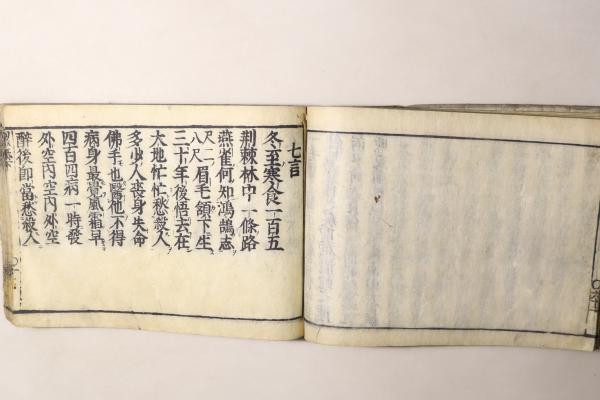 七言
冬至寒食一百五
荆棘林中一條路
燕雀何知鴻鵠志
尺二眉毛頷下生
八尺
三十年後悟去在
大地忙忙愁殺人
多少人喪身失命
佛手也醫他不得
病身最覺風霜早
四百四病一時發
外空内空内外空
醉後即當愁殺人